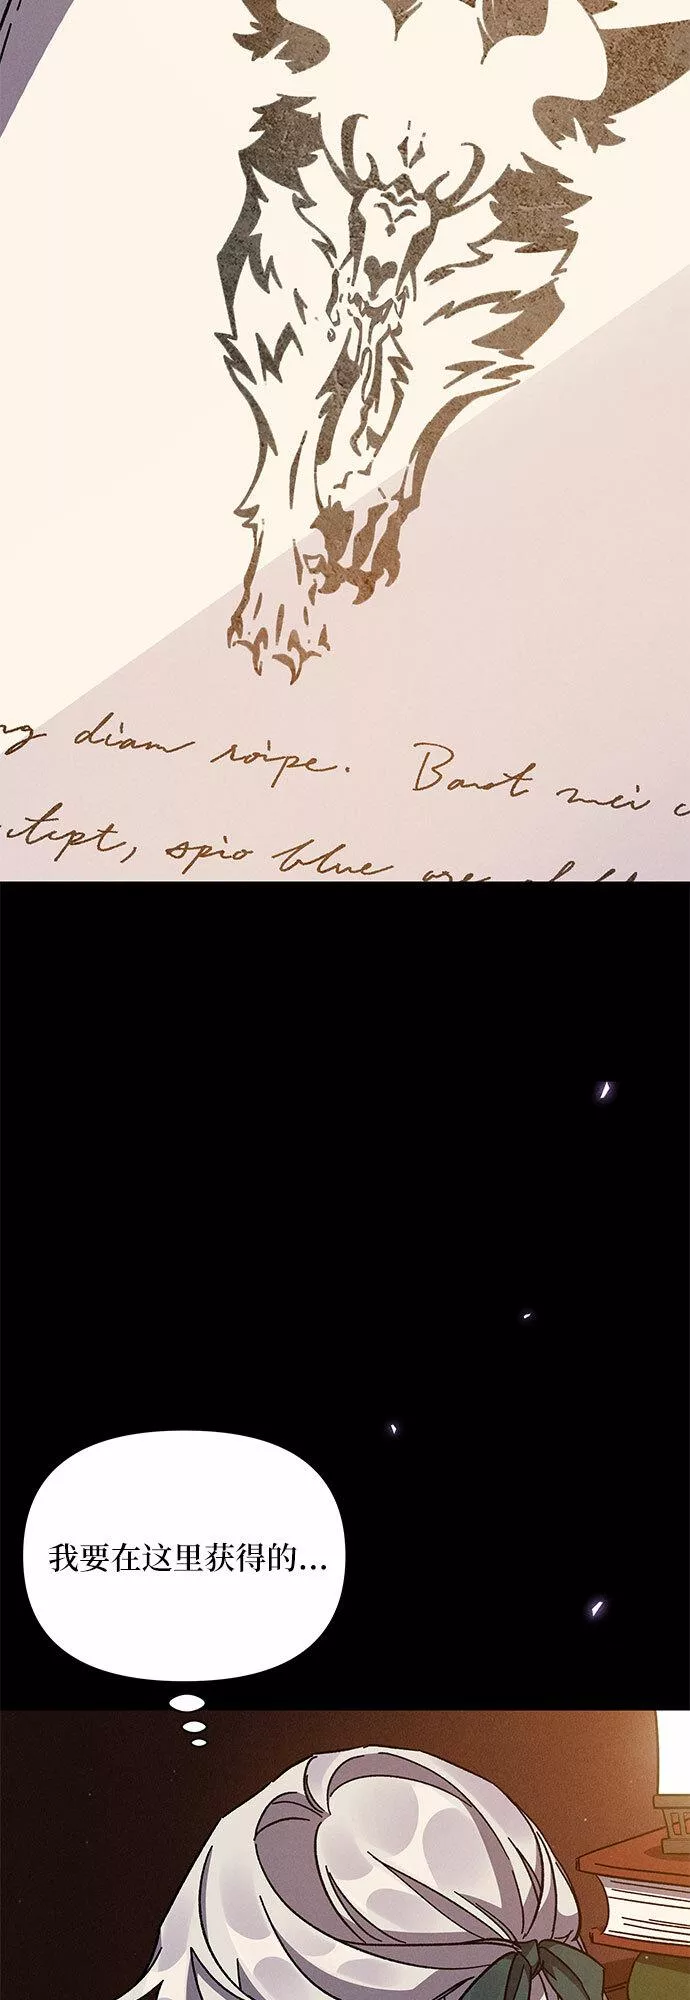 ng diam roipe. Barot mei
utept, spio blue are
我要在这里获得的...